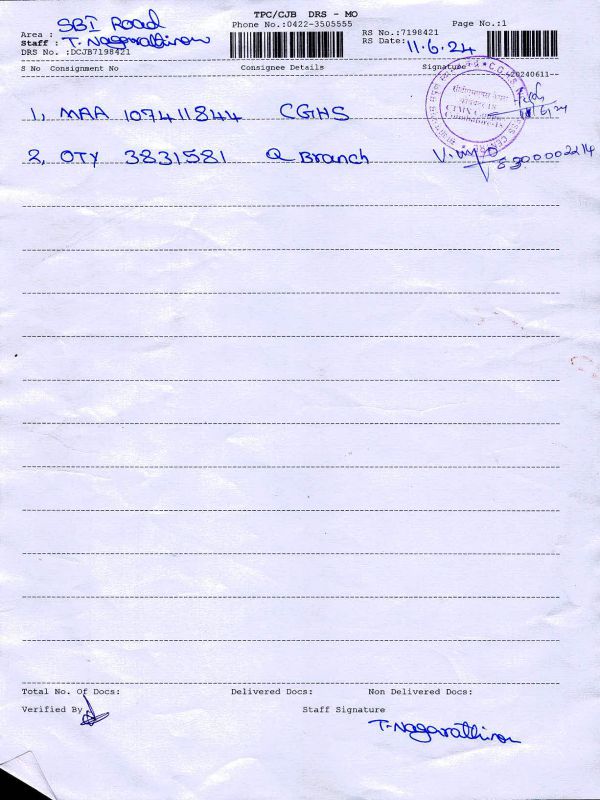 TPC/CJB DRS - MO
Area : SBI Road
Phone No.:0422-3505555
Page No.:1
Staff : T. Nagarathinam
RS No.:7198421
DRS No. :DCJB7198421
RS Date: 11.6.24
S No Consignment No
Consignee Details
Signature
20240611--
1, MAA 107411844 CGHS
2, OTY 3831581 Q Branch
Total No. Of Docs:
Delivered Docs:
Non Delivered Docs:
Verified By
Staff Signature
T. Nagarathinam